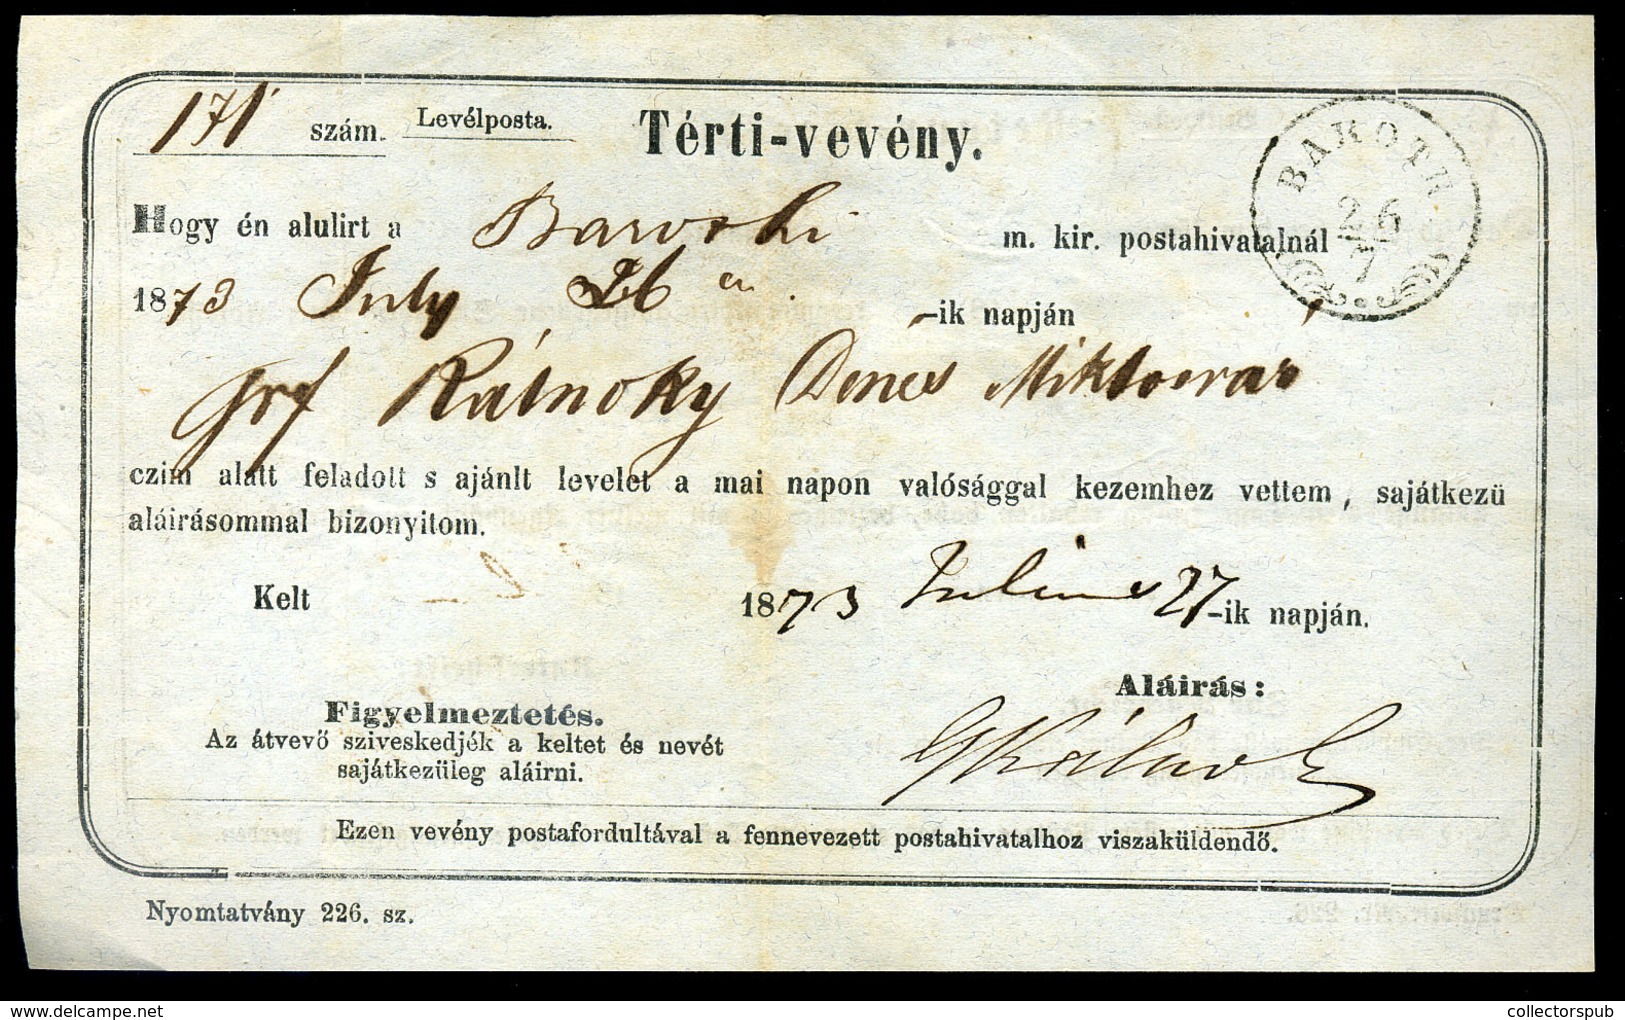 171 szám. Levélposta. Térti-vevény.
BAROTH
26
7
Hogy én alulirt a Barothi m. kir. postahivatalnál
1873 July 26 én -ik napján
Grf Kálnoky Dénes Miklosvár
czim alatt feladott s ajánlt levelet a mai napon valósággal kezemhez vettem, sajátkezü
aláirásommal bizonyitom.
Kelt 1873 Julius 27-ik napján.
Aláirás:
Figyelmeztetés.
Az átvevő sziveskedjék a keltet és nevét
sajátkezüleg aláirni.
Ezen vevény postafordultával a fennevezett postahivatalhoz viszaküldendő.
Nyomtatvány 226. sz.
collectorspub.com